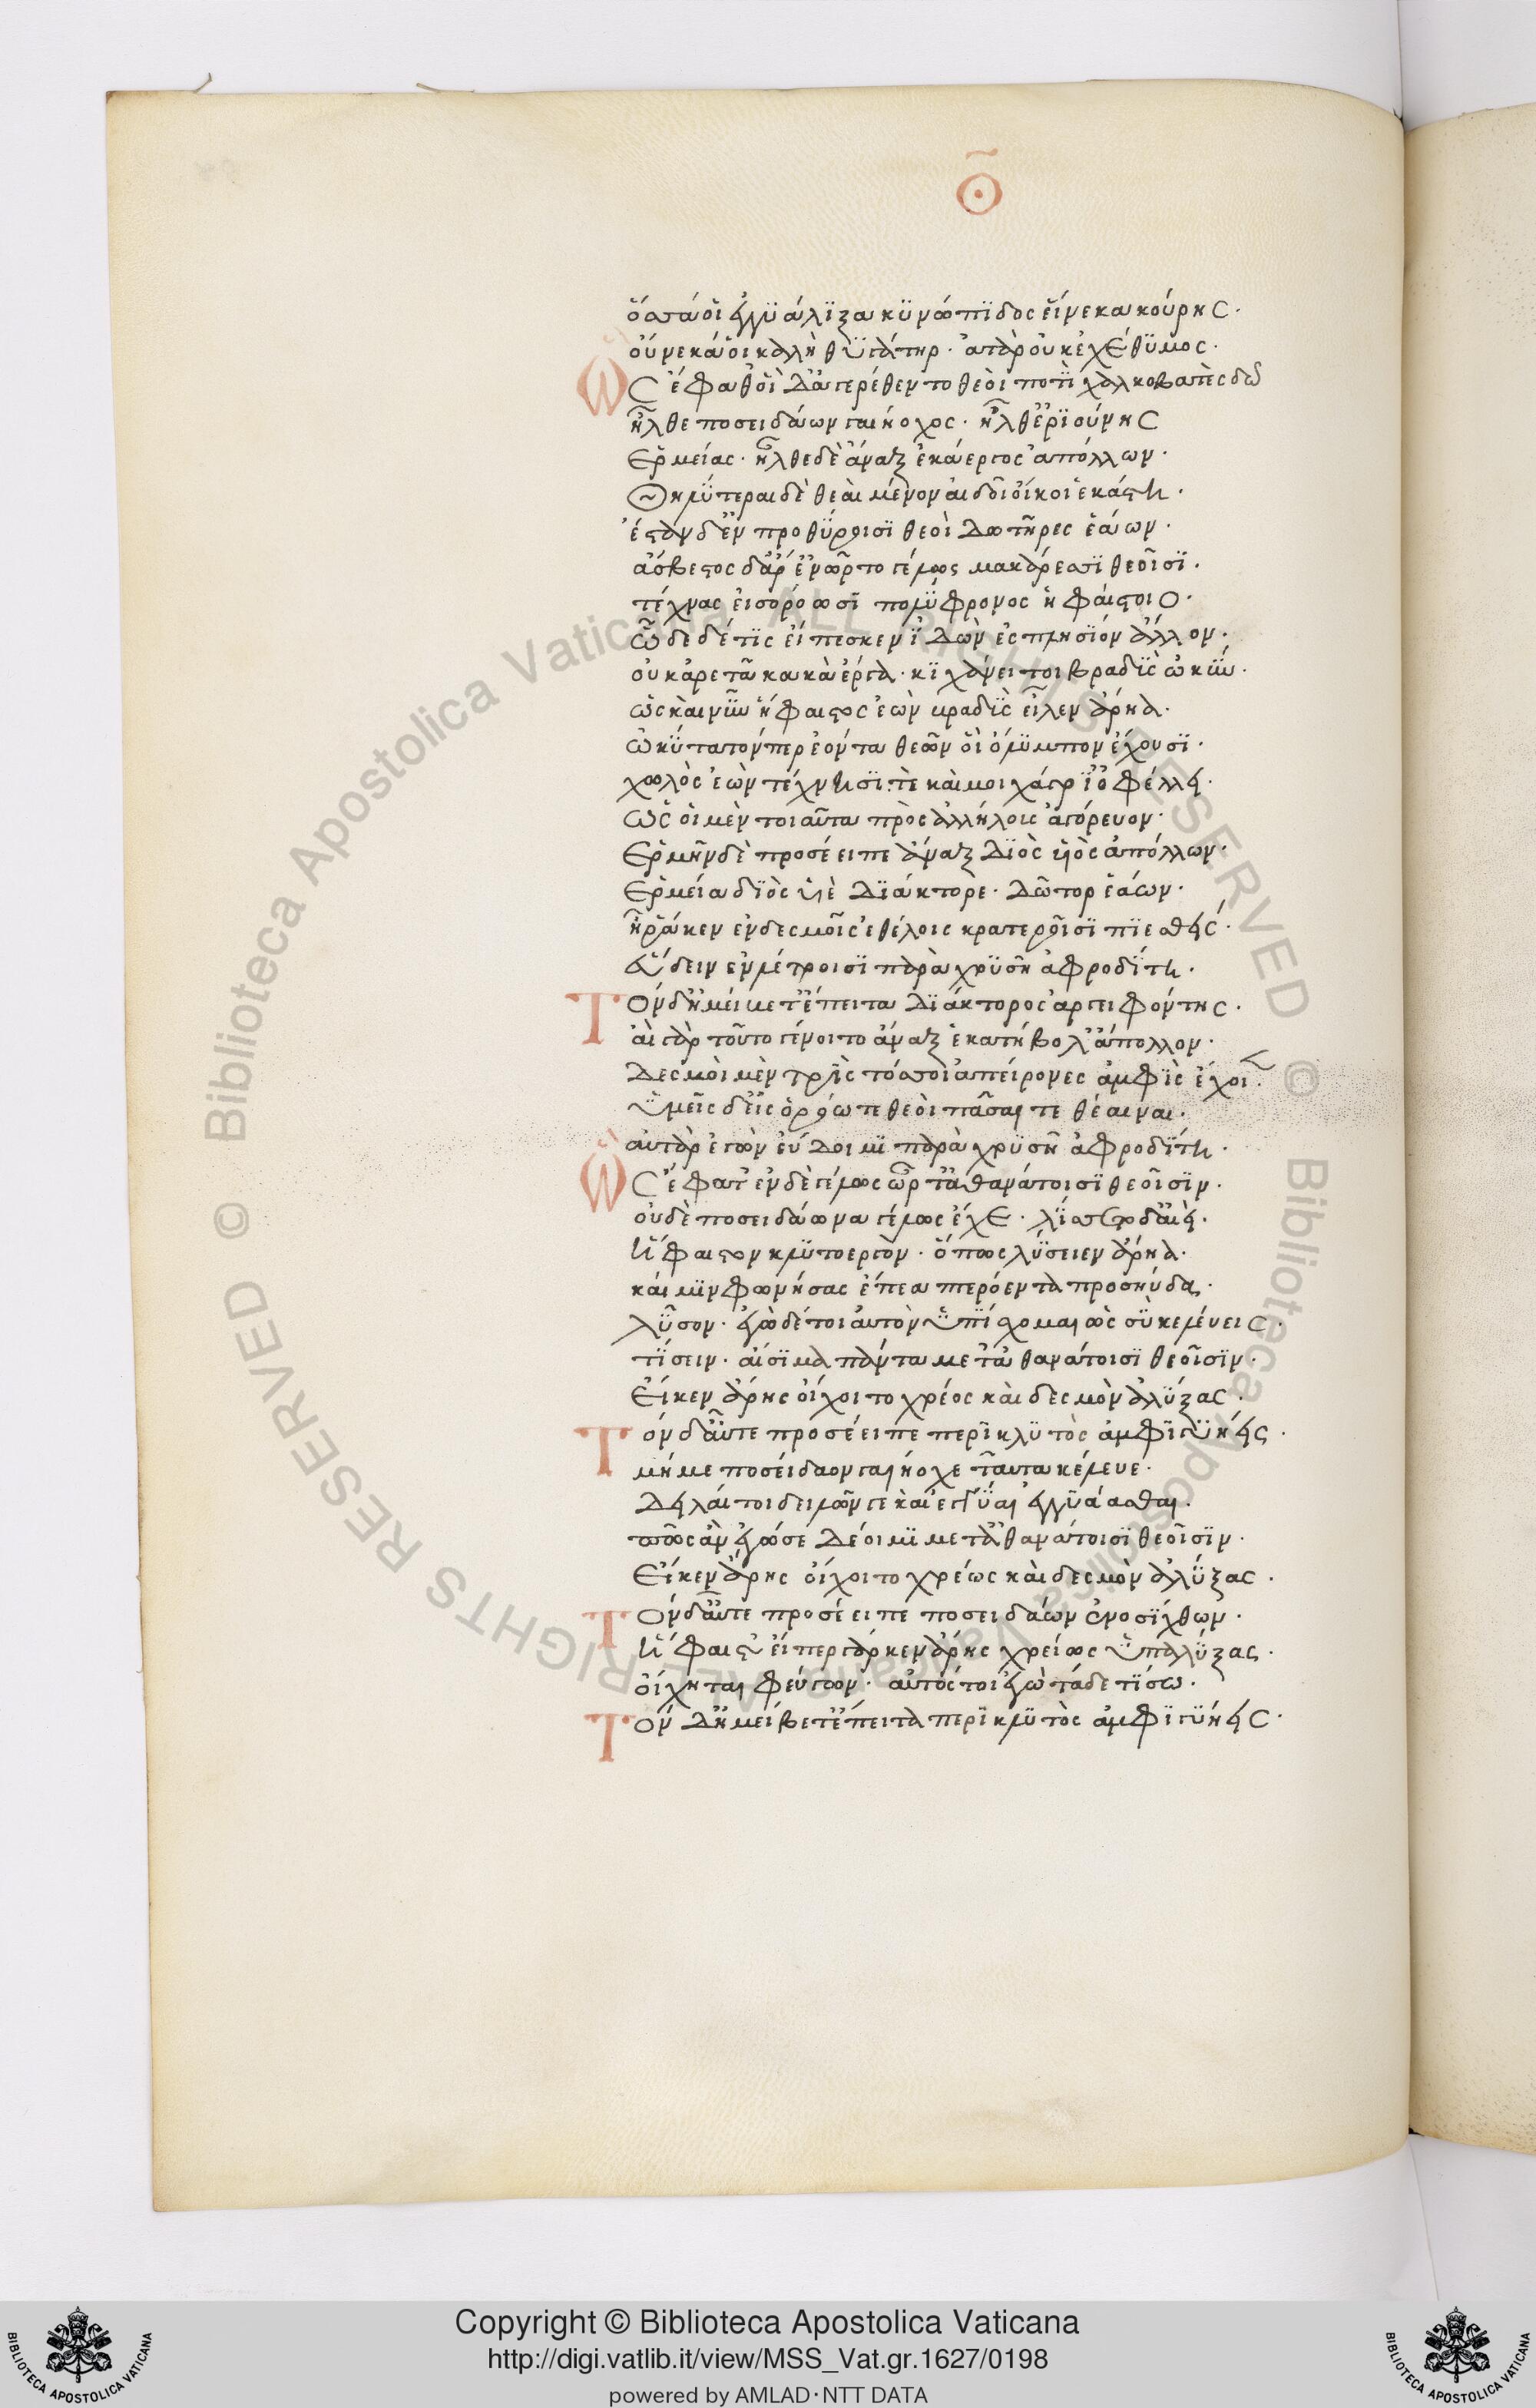 Θ
ὅσσά οἱ ἐγγυάλιξα κυνώπιδος εἵνεκα κούρης·
οὕνεκά οἱ καλὴ θυγάτηρ· ἀτὰρ οὐκ ἐχέθυμος·
Ὣς ἔφαθ' οἱ δ' ἀγερέθεντο θεοὶ ποτὶ χαλκοβατὲς δῶ
ἦλθε ποσειδάων γαιήοχος· ἦλθ' ἐριούνης
Ἑρμείας· ἦλθε δὲ ἄναξ ἑκάεργος ἀπόλλων·
Θηλύτεραι δὲ θεαὶ μένον αἰδοῖ οἴκοι ἑκάστη·
ἔσταν δ' ἐν προθύροισι θεοὶ δωτῆρες ἑάων·
ἄσβεστος δ' ἄρ' ἐνῶρτο γέλως μακάρεσσι θεοῖσι·
τέχνας εἰσορόωσι πολύφρονος ἡφαίστοιο·
ὧδε δέ τις εἴπεσκεν ἰδὼν ἐς πλησίον ἄλλον·
οὐκ ἀρετᾶ κακὰ ἔργα· κιχάνει τοι βραδὺς ὠκύν·
ὡς καὶ νῦν ἥφαιστος ἐὼν βραδὺς εἷλεν ἄρηα·
ὠκύτατόν περ ἐόντα θεῶν οἳ ὄλυμπον ἔχουσι·
χωλὸς ἐὼν τέχνησι· τὸ καὶ μοιχάγρι' ὀφέλλει·
ὣς οἱ μὲν τοιαῦτα πρὸς ἀλλήλους ἀγόρευον·
Ἑρμῆν δὲ προσέειπε ἄναξ Διὸς υἱὸς ἀπόλλων·
Ἑρμεία διὸς υἱὲ Διάκτορε· Δῶτορ ἑάων·
ἦ ῥά κεν ἐν δεσμοῖς ἐθέλοις κρατεροῖσι πιεσθείς·
εὕδειν ἐν λέκτροισι παρὰ χρυσῆ ἀφροδίτη·
Τὸν δ' ἠμείβετ' ἔπειτα Διάκτορος ἀργειφόντης·
αἲ γὰρ τοῦτο γένοιτο ἄναξ ἑκατηβόλ' ἄπολλον·
Δεσμοὶ μὲν τρὶς τόσσοι ἀπείρονες ἀμφὶς ἔχοιεν·
ὑμεῖς δ' εἰσορόωτε θεοὶ πᾶσαι τε θέαιναι·
αὐτὰρ ἐγὼν εὕδοιμι παρὰ χρυσῆ ἀφροδίτη·
Ὣς ἔφατ' ἐν δὲ γέλως ὦρτ' ἀθανάτοισι θεοῖσιν·
οὐδὲ ποσειδάωνα γέλως ἔχε· λίσσετο δ' αἰεὶ·
Ἥφαιστον κλυτοεργὸν· ὅπως λύσειεν ἄρηα·
καί μιν φωνήσας ἔπεα πτερόεντα προσηύδα·
λῦσον· ἐγὼ δέ τοι αὐτὸν ὑπίσχομαι ὡς σὺ κελεύεις·
τίσειν· αἴσιμα πάντα μετ' ἀθανάτοισι θεοῖσιν·
Εἴ κεν ἄρης οἴχοιτο χρέος καὶ δεσμὸν ἀλύξας·
Τὸν δ' αὖτε προσέειπε περικλυτὸς ἀμφιγυήεις·
μή με ποσείδαον γαιήοχε ταῦτα κέλευε·
Δειλαί τοι δειλῶν γε καὶ ἐγγύαι ἐγγυάασθαι·
πῶς ἂν ἐγώ σε Δέοιμι μετ' ἀθανάτοισι θεοῖσιν·
Εἴ κεν ἄρης οἴχοιτο χρέως καὶ δεσμὸν ἀλύξας·
Τὸν δ' αὖτε προσέειπε ποσειδάων ἐνοσίχθων·
Ἥφαιστ' εἴπερ γάρ κεν ἄρης χρείως ὑπαλύξας·
οἴχηται φεύγων· αὐτός τοι ἐγὼ τάδε τίσω·
Τὸν Δ' ἠμείβετ' ἔπειτα περικλυτὸς ἀμφιγυήεις·
© Biblioteca Apostolica Vaticana ALL RIGHTS RESERVED
© Biblioteca Apostolica Vaticana ALL RIGHTS RESERVED
Copyright © Biblioteca Apostolica Vaticana
http://digi.vatlib.it/view/MSS_Vat.gr.1627/0198
powered by AMLAD·NTT DATA
BIBLIOTECA APOSTOLICA VATICANA
BIBLIOTECA APOSTOLICA VATICANA